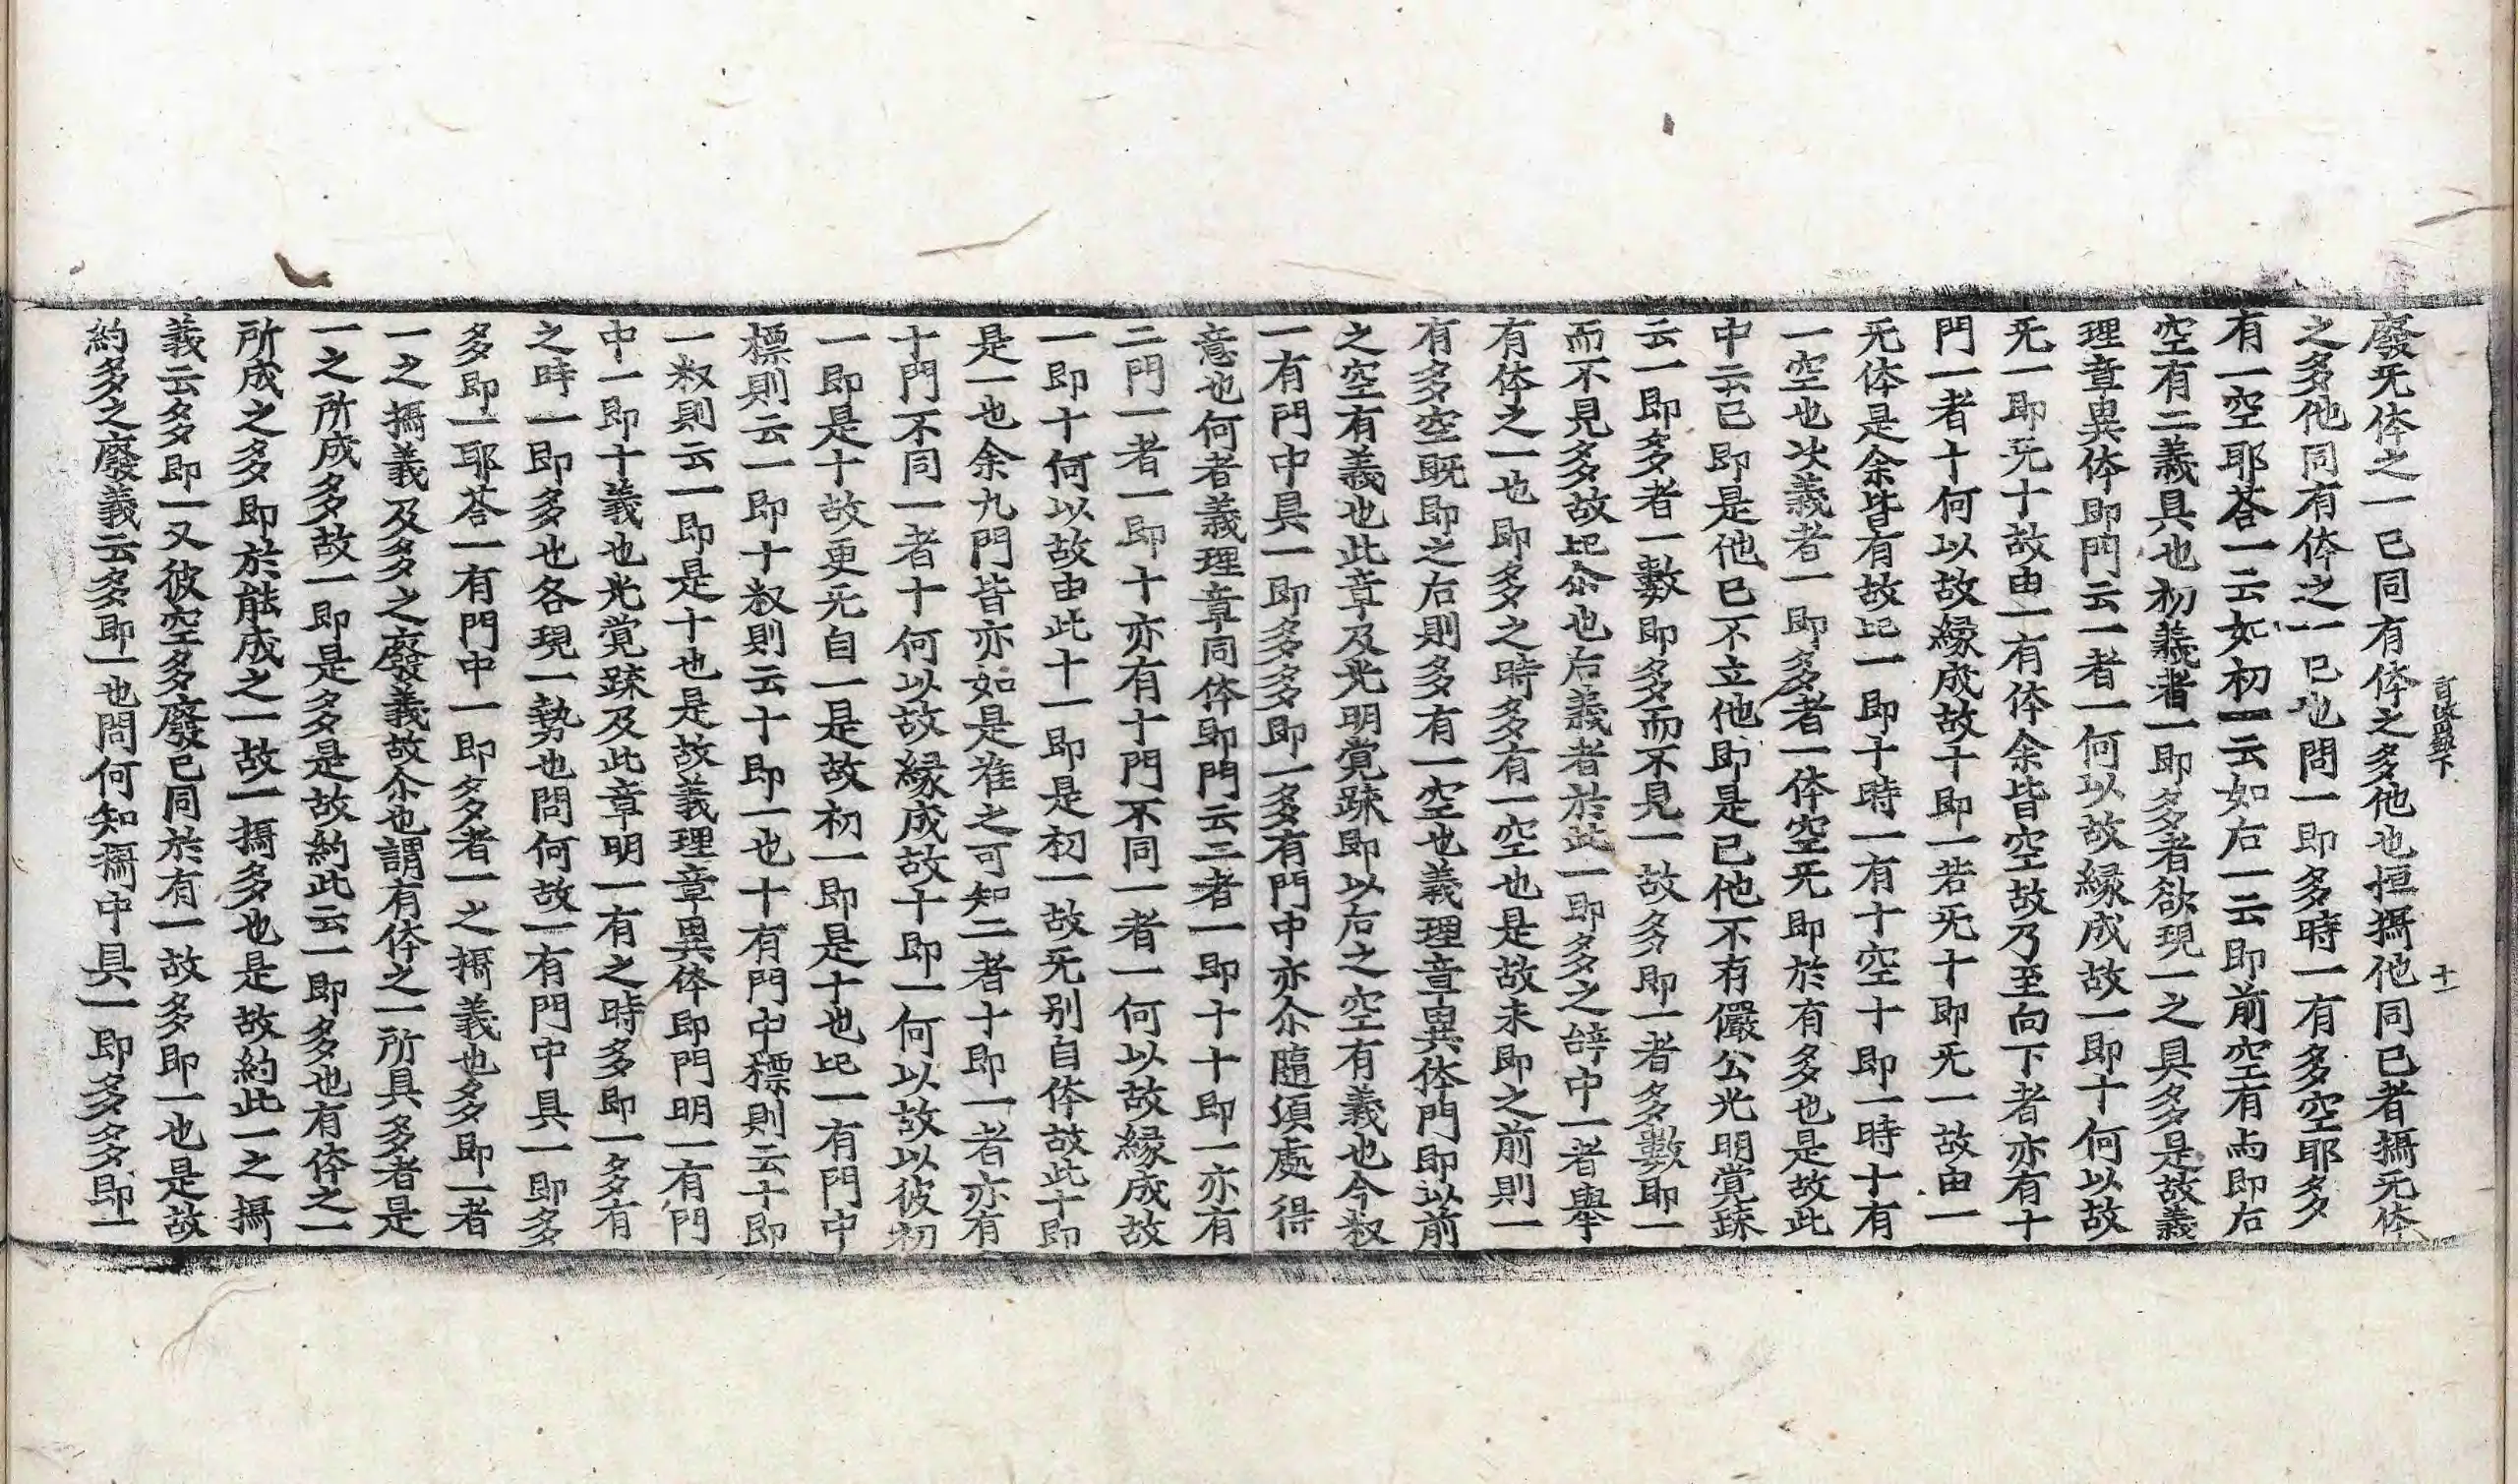 廢无体之一已同有体之多他也恒攝他同已者攝无体
之多他同有体之一已也問一即多時一有多空耶多
有一空耶荅一云如初一云如右一云即前空有尚即右
空有二義具也初義者一即多者欲現一之具多是故義
理章異体即門云一者一何以故緣成故一即十何以故
无一即无十故由一有体余皆空故乃至向下者亦有十
門一者十何以故緣成故十即一若无十即无一故由一
无体是余皆有故比一即十時一有十空十即一時十有
一空也次義者一即多者一体空无即於有多也是故此
中云已即是他已不立他即是已他不有儼公光明覚䟽
云一即多者一數即多而不見一故多即一者多數即一
而不見多故比尒也右義者於此一即多之辞中一者擧
有体之一也即多之時多有一空也是故未即之前則一
有多空既即之右則多有一空也義理章異体門即以前
之空有義也此章及光明覚䟽即以右之空有義也今叙
一有門中具一即多多即一多有門中亦尒隨須處得
意也何者義理章同体即門云三者一即十十即一亦有
二門一者一即十亦有十門不同一者一何以故緣成故
一即十何以故由此十一即是初一故无别自体故此十即
是一也余九門皆亦如是准之可知二者十即一者亦有
十門不同一者十何以故緣成故十即一何以故以彼初
一即是十故更无自一是故初一即是十也比一有門中
標則云一即十叙則云十即一也十有門中標則云十即
一叙則云一即是十也是故義理章異体即門明一有門
中一即十義也光覚䟽及此章明一有之時多即一多有
之時一即多也各現一勢也問何故一有門中具一即多
多即一耶荅一有門中一即多者一之攝義也多即一者
一之攝義及多之廢義故尒也謂有体之一所具多者是
一之所成多故一即是多是故約此云一即多也有体之一
所成之多即於能成之一故一攝多也是故約此一之攝
義云多即一又彼空多廢已同於有一故多即一也是故
約多之廢義云多即一也問何知攝中具一即多多即一
十一